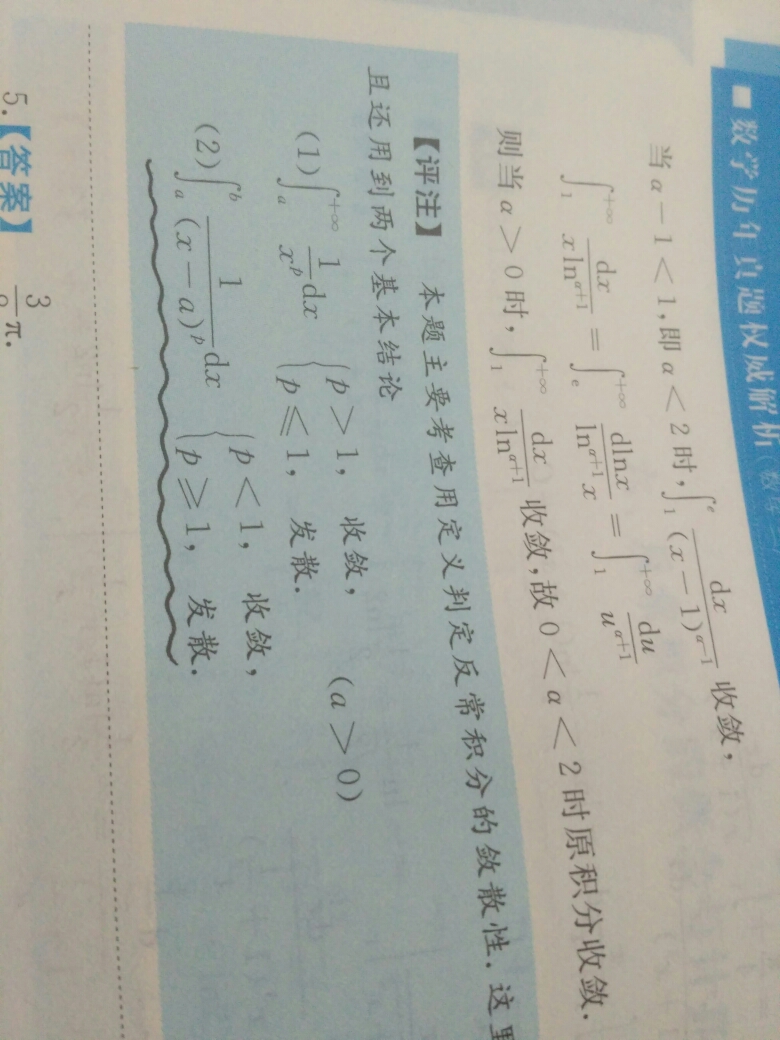 ■ 数学历年真题权威解析(数学二
当α-1<1,即α<2时,∫₁ᵉ dx/(x-1)^(α-1) 收敛,
∫₁^(+∞) dx/(x ln^(α+1)) = ∫ₑ^(+∞) dlnx/(ln^(α+1) x) = ∫₁^(+∞) du/u^(α+1)
则当α>0时,∫₁^(+∞) dx/(x ln^(α+1)) 收敛,故0<α<2时原积分收敛.
【评注】 本题主要考查用定义判定反常积分的敛散性.这里
且还用到两个基本结论
(1)∫ₐ^(+∞) 1/x^p dx { p>1, 收敛, p≤1, 发散. (a>0)
(2)∫ₐᵇ 1/(x-a)^p dx { p<1, 收敛, p≥1, 发散.
5.【答案】 π.